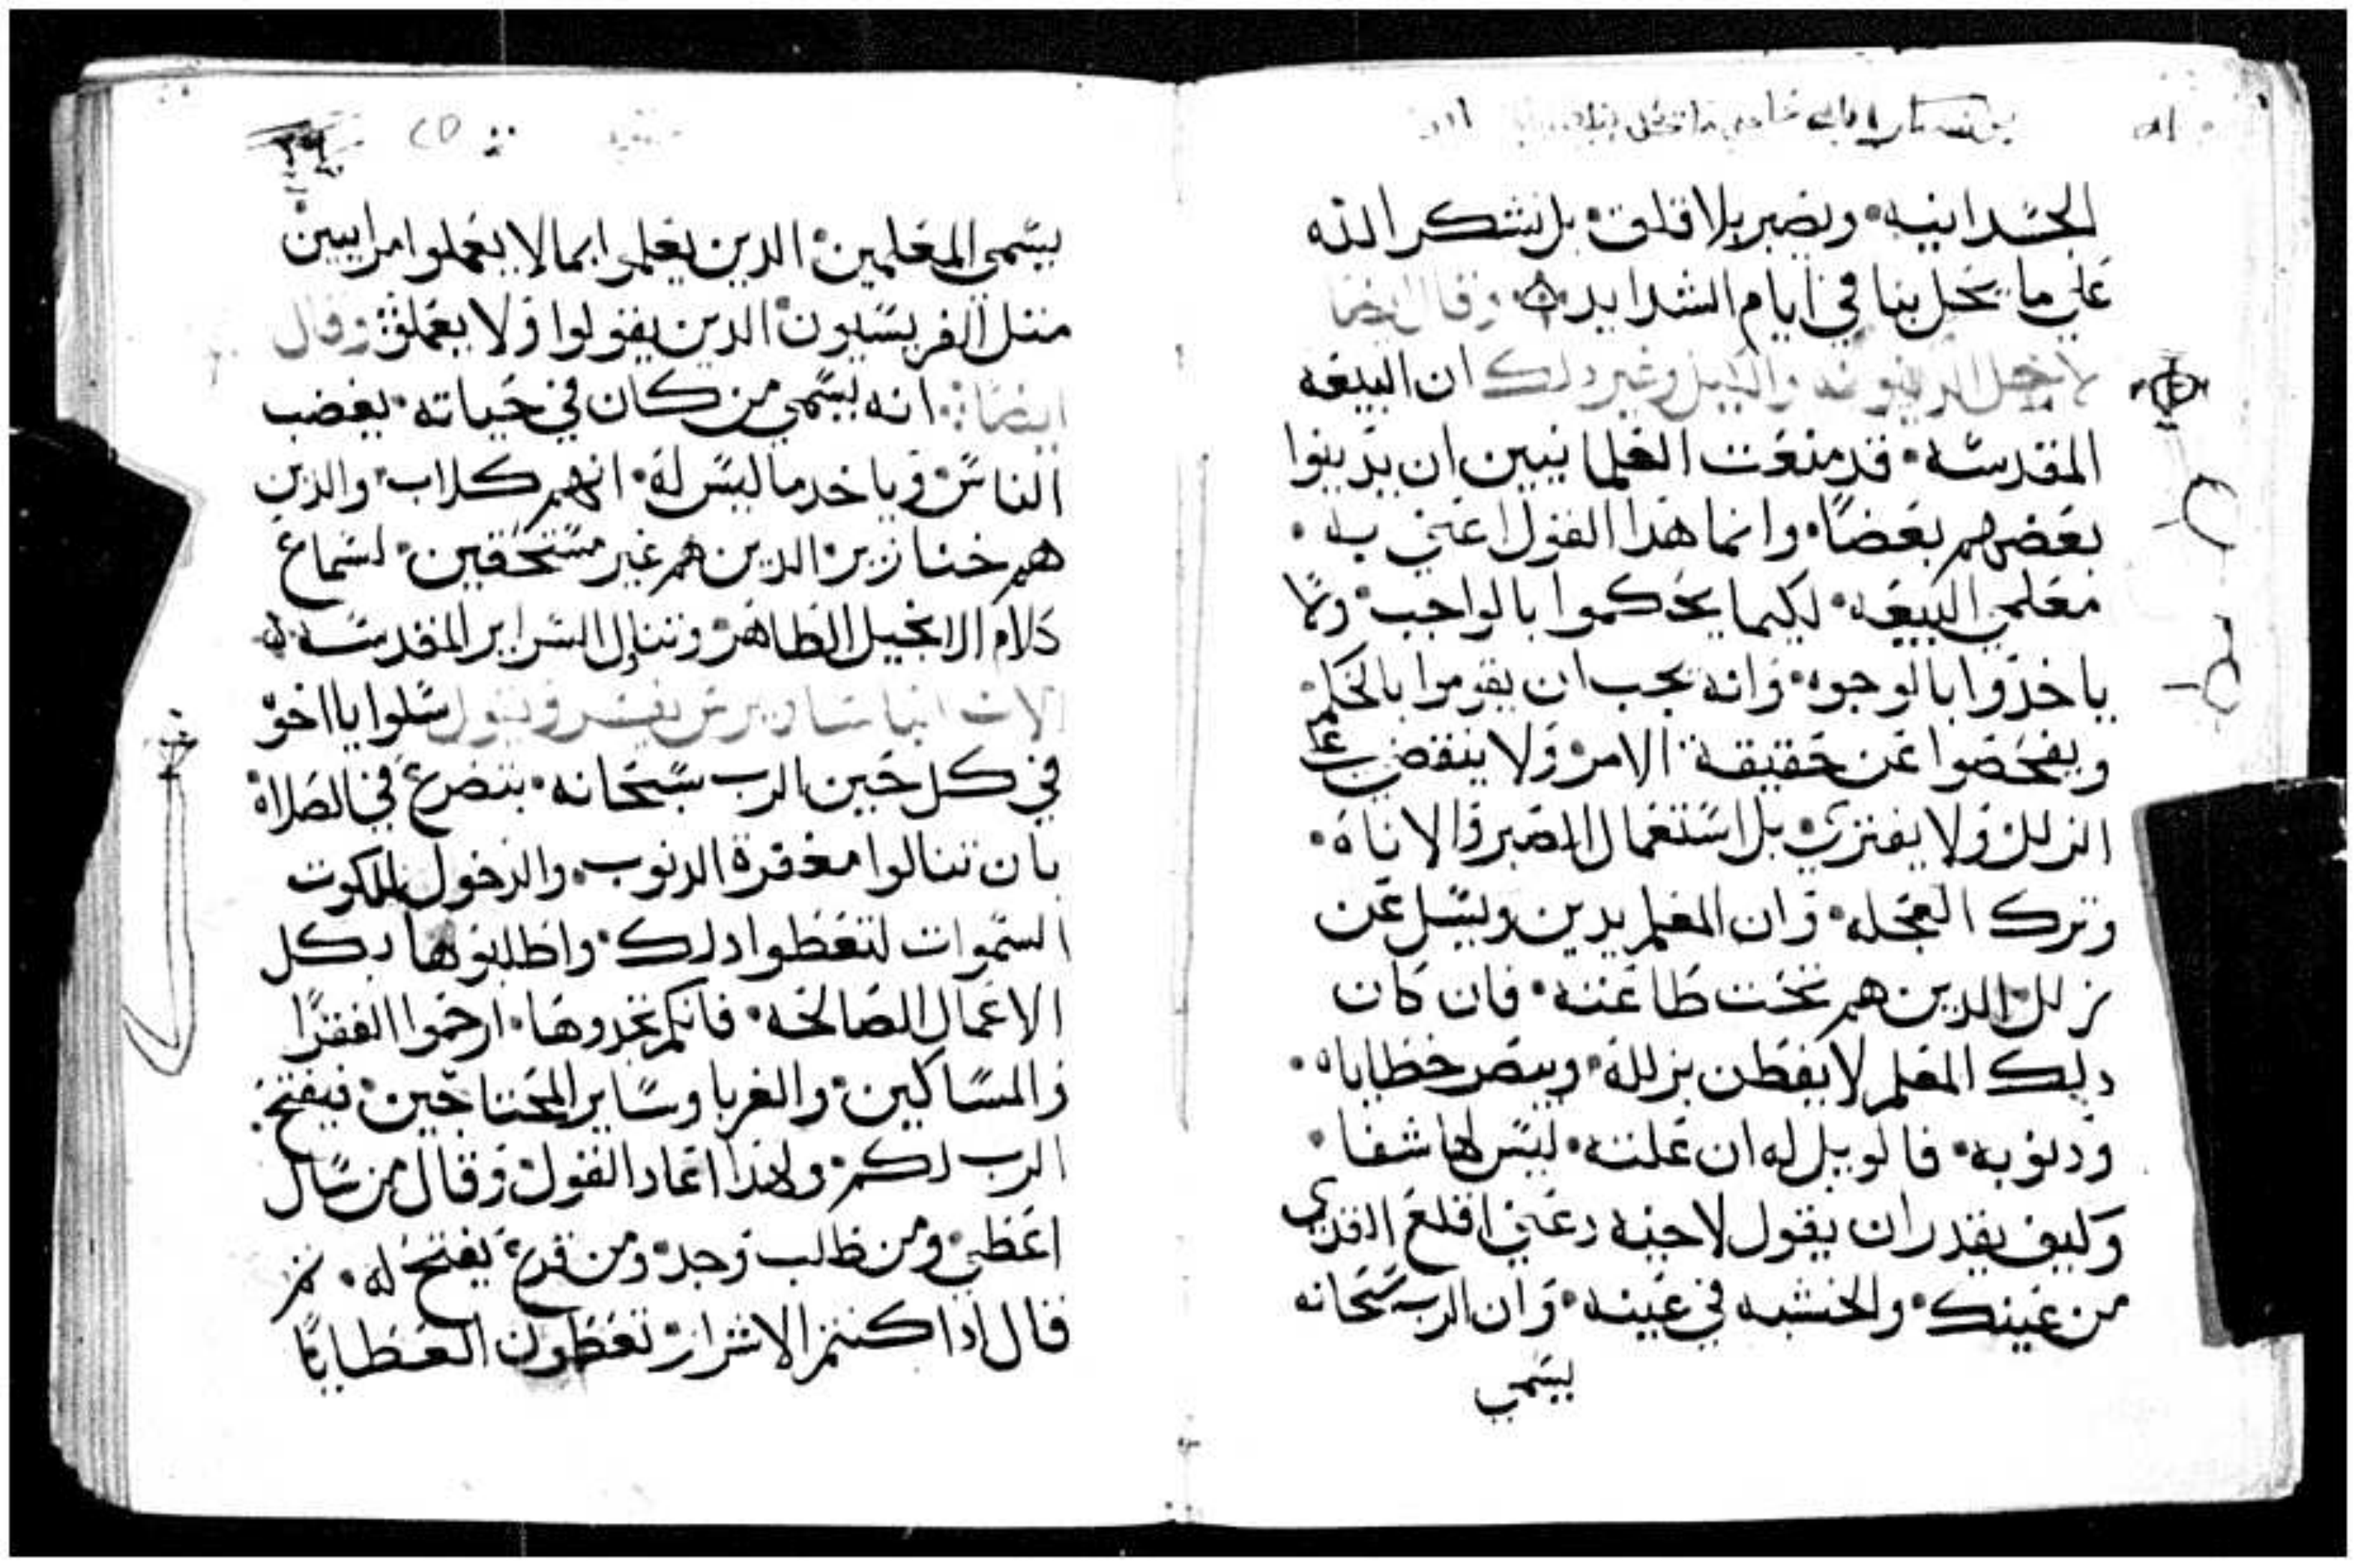 الجسدانيه • ونصبر بلا قلق • بل نشكر الله
علي ما يحل بنا في ايام الشدايد وقال ايضا
لاجل الدينونه وغير دلك ان البيعه
المقدسه • قد منعت العلمانيين ان يدينوا
بعضهم بعضًا • وانما هدا القول اعني به •
معلمي البيعه • لكيما يحكموا بالواجب • ولا
ياخدوا بالوجوه • وانه يجب ان يقوموا بالحكم
ويفحصوا عن حقيقة الامر • ولا ينقض
الزلل • ولا يفتري • بل استعمال الصبر والاناه •
وترك العجله • وان المعلم يدين ويسل عن
زلل الدين هم تحت طاعته • فان كان
دلك المعلم لا يفطن بزلله • ويبصر خطاياه •
ودنوبه • فالويل له ان علته • ليس لها شفا •
وكيف يقدر ان يقول لاخيه دعني اقلع القدي
من عينك • والخشبه في عينه • وان الرب سبحانه
يسمي
يسمي المعلمين • الدين يعلموا بما لا يعملوا مراييين
متل الفريسيون • الدين يقولوا ولا يعملو وقال
ايضا انه يسمي من كان في حياته • يغضب
الناس • وياخد ما ليس له • انهم كلاب • والدين
هم خنازير • الدين هم غير مستحقين • لسماع
كلام الانجيل الطاهر • وتناول السراير المقدسه
الاب انبا ساويرس يفسر ويقول سلوا يا اخوه
في كل حين الرب سبحانه • بتضرع في الصلاه •
بان تنالوا مغفرة الدنوب • والدخول لملكوت
السموات لتعطوا دلك • واطلبوها بكل
الاعمال الصالحه • فانكم تجدوها • ارحموا الفقرا
والمساكين • والغربا وسايرالمحتاجين • فيفتح
الرب لكم • ولهدا اعاد القول • وقال من سال
اعطي • ومن طلب وجد • ومن قرع يفتح له • تم
قال ادا كنتم الاشرار • تعطون العطايا